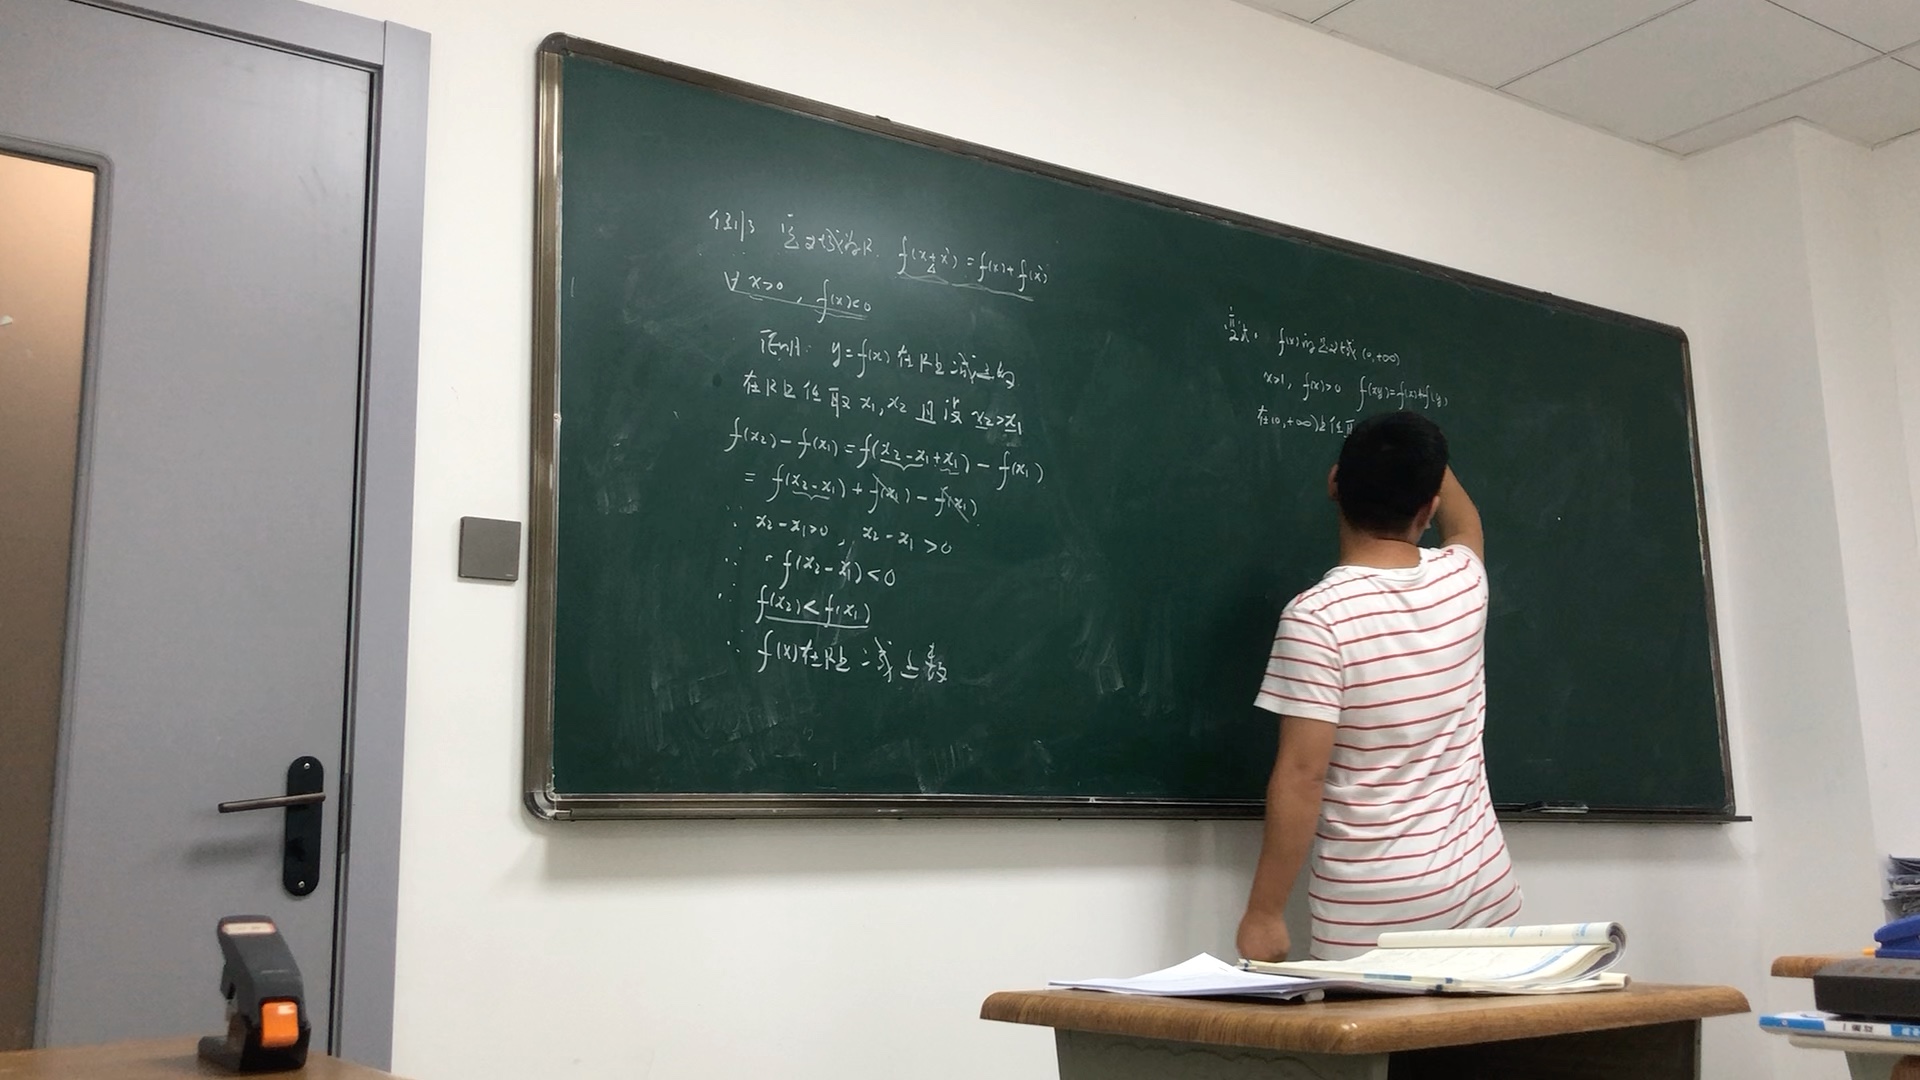 例3 定义域为R. f(x+x')=f(x)+f(x')
∀x>0, f(x)<0
证明: y=f(x)在R上
在R上任取x₁,x₂且设x₂>x₁
f(x₂)-f(x₁)=f(x₂-x₁+x₁)-f(x₁)
=f(x₂-x₁)+f(x₁)-f(x₁)
∵ x₂-x₁>0, x₂-x₁>0
∴ f(x₂-x₁)<0
∴ f(x₂)<f(x₁)
∴ f(x)在R上
f(x)的定义域(0,+∞)
x>1, f(x)>0 f(xy)=f(x)+f(y)
在(0,+∞)上任取